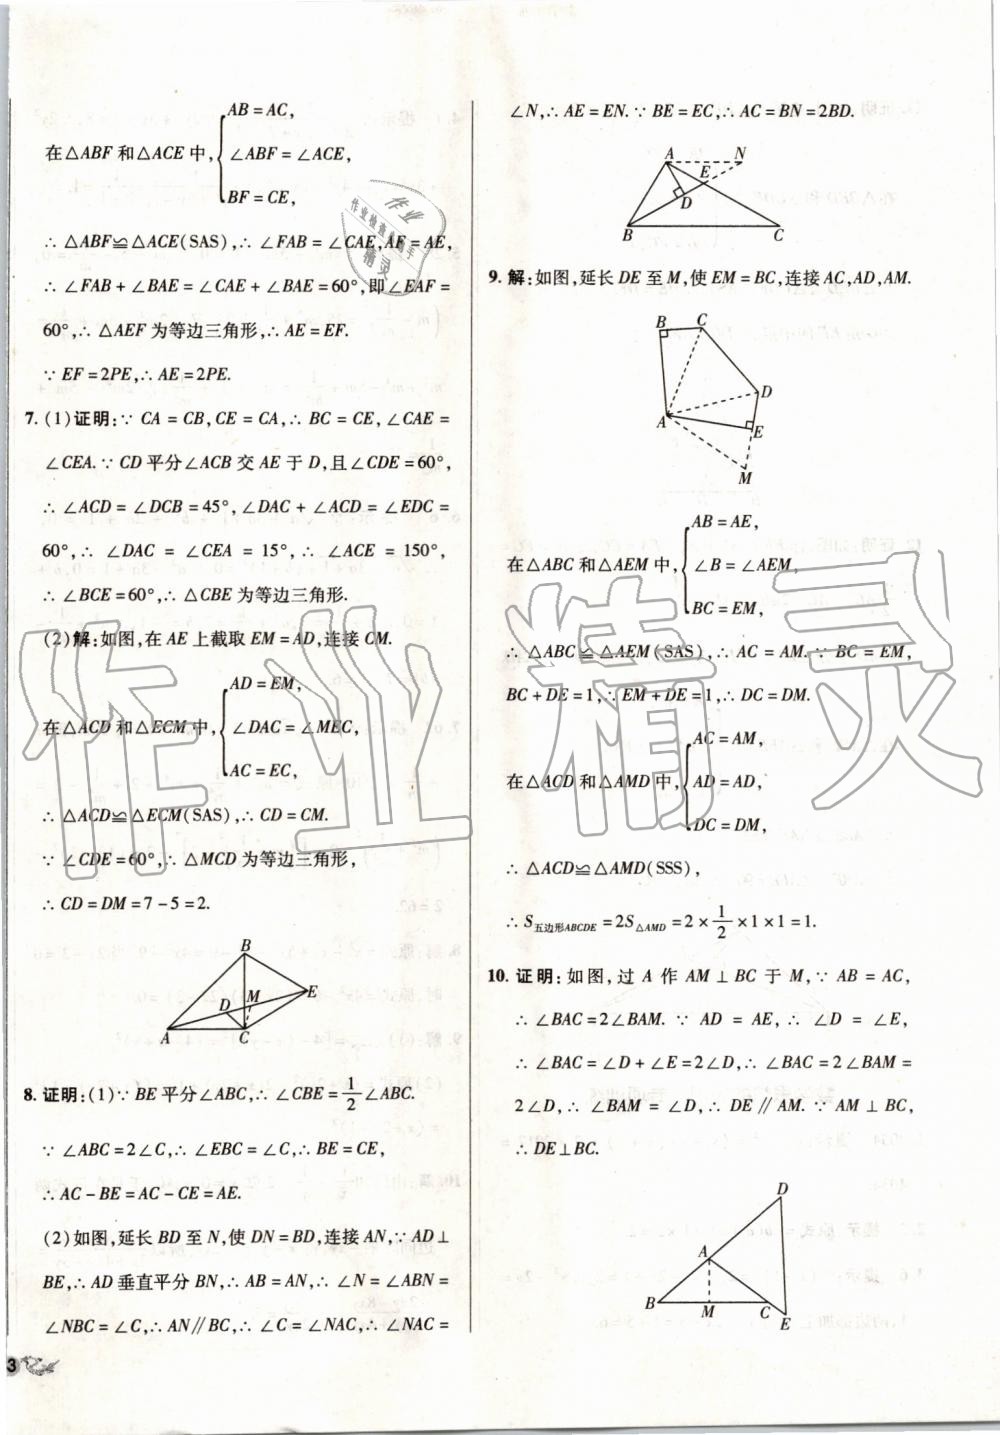 AB = AC,
在△ABF 和△ACE 中, ∠ABF = ∠ACE,
BF = CE,
∴ △ABF≌△ACE(SAS),∴ ∠FAB = ∠CAE,AF = AE,
∴ ∠FAB + ∠BAE = ∠CAE + ∠BAE = 60°,即∠EAF =
60°,∴ △AEF 为等边三角形,∴ AE = EF.
∵ EF = 2PE,∴ AE = 2PE.
7. (1)证明:∵ CA = CB,CE = CA,∴ BC = CE,∠CAE =
∠CEA.∵ CD 平分∠ACB 交 AE 于 D,且∠CDE = 60°,
∴ ∠ACD = ∠DCB = 45°,∠DAC + ∠ACD = ∠EDC =
60°,∴ ∠DAC = ∠CEA = 15°,∴ ∠ACE = 150°,
∴ ∠BCE = 60°,∴ △CBE 为等边三角形.
(2)解:如图,在 AE 上截取 EM = AD,连接 CM.
AD = EM,
在△ACD 和△ECM 中, ∠DAC = ∠MEC,
AC = EC,
∴ △ACD≌△ECM(SAS),∴ CD = CM.
∵ ∠CDE = 60°,∴ △MCD 为等边三角形,
∴ CD = DM = 7 - 5 = 2.
B
D M E
A C
8. 证明:(1)∵ BE 平分∠ABC,∴ ∠CBE = 1/2 ∠ABC.
∵ ∠ABC = 2∠C,∴ ∠EBC = ∠C,∴ BE = CE,
∴ AC - BE = AC - CE = AE.
(2)如图,延长 BD 至 N,使 DN = BD,连接 AN,∵ AD⊥
BE,∴ AD 垂直平分 BN,∴ AB = AN,∴ ∠N = ∠ABN =
∠NBC = ∠C,∴ AN∥BC,∴ ∠C = ∠NAC,∴ ∠NAC =
3
∠N,∴ AE = EN.∵ BE = EC,∴ AC = BN = 2BD.
A N
E
D
B C
9. 解:如图,延长 DE 至 M,使 EM = BC,连接 AC,AD,AM.
B C
D
A E
M
AB = AE,
在△ABC 和△AEM 中, ∠B = ∠AEM,
BC = EM,
∴ △ABC ≌ △AEM(SAS),∴ AC = AM.∵ BC = EM,
BC + DE = 1,∴ EM + DE = 1,∴ DC = DM.
AC = AM,
在△ACD 和△AMD 中, AD = AD,
DC = DM,
∴ △ACD≌△AMD(SSS),
∴ S五边形ABCDE = 2S△AMD = 2 × 1/2 × 1 × 1 = 1.
10. 证明:如图,过 A 作 AM ⊥ BC 于 M,∵ AB = AC,
∴ ∠BAC = 2∠BAM. ∵ AD = AE,∴ ∠D = ∠E,
∴ ∠BAC = ∠D + ∠E = 2∠D,∴ ∠BAC = 2∠BAM =
2∠D,∴ ∠BAM = ∠D,∴ DE∥AM.∵ AM ⊥ BC,
∴ DE⊥BC.
D
A
B M C
E
作业精灵
作业
作业检查小助手
精灵